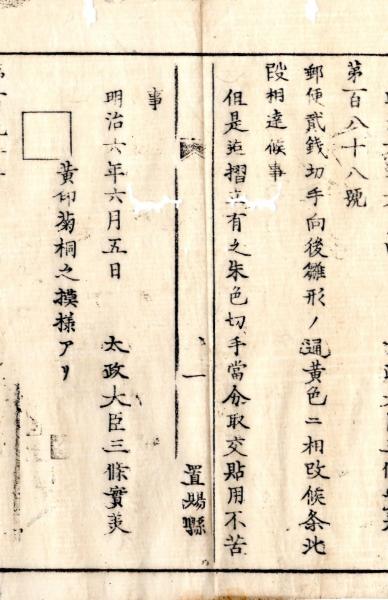 第百八十八號
郵便貳錢切手向後雛形ノ通黃色ニ相改候条此
段相達候事
但是迄摺立有之朱色切手當分取交貼用不苦
一
置賜縣
事
明治六年六月五日 太政大臣三條實美
黃印菊桐之摸樣アリ